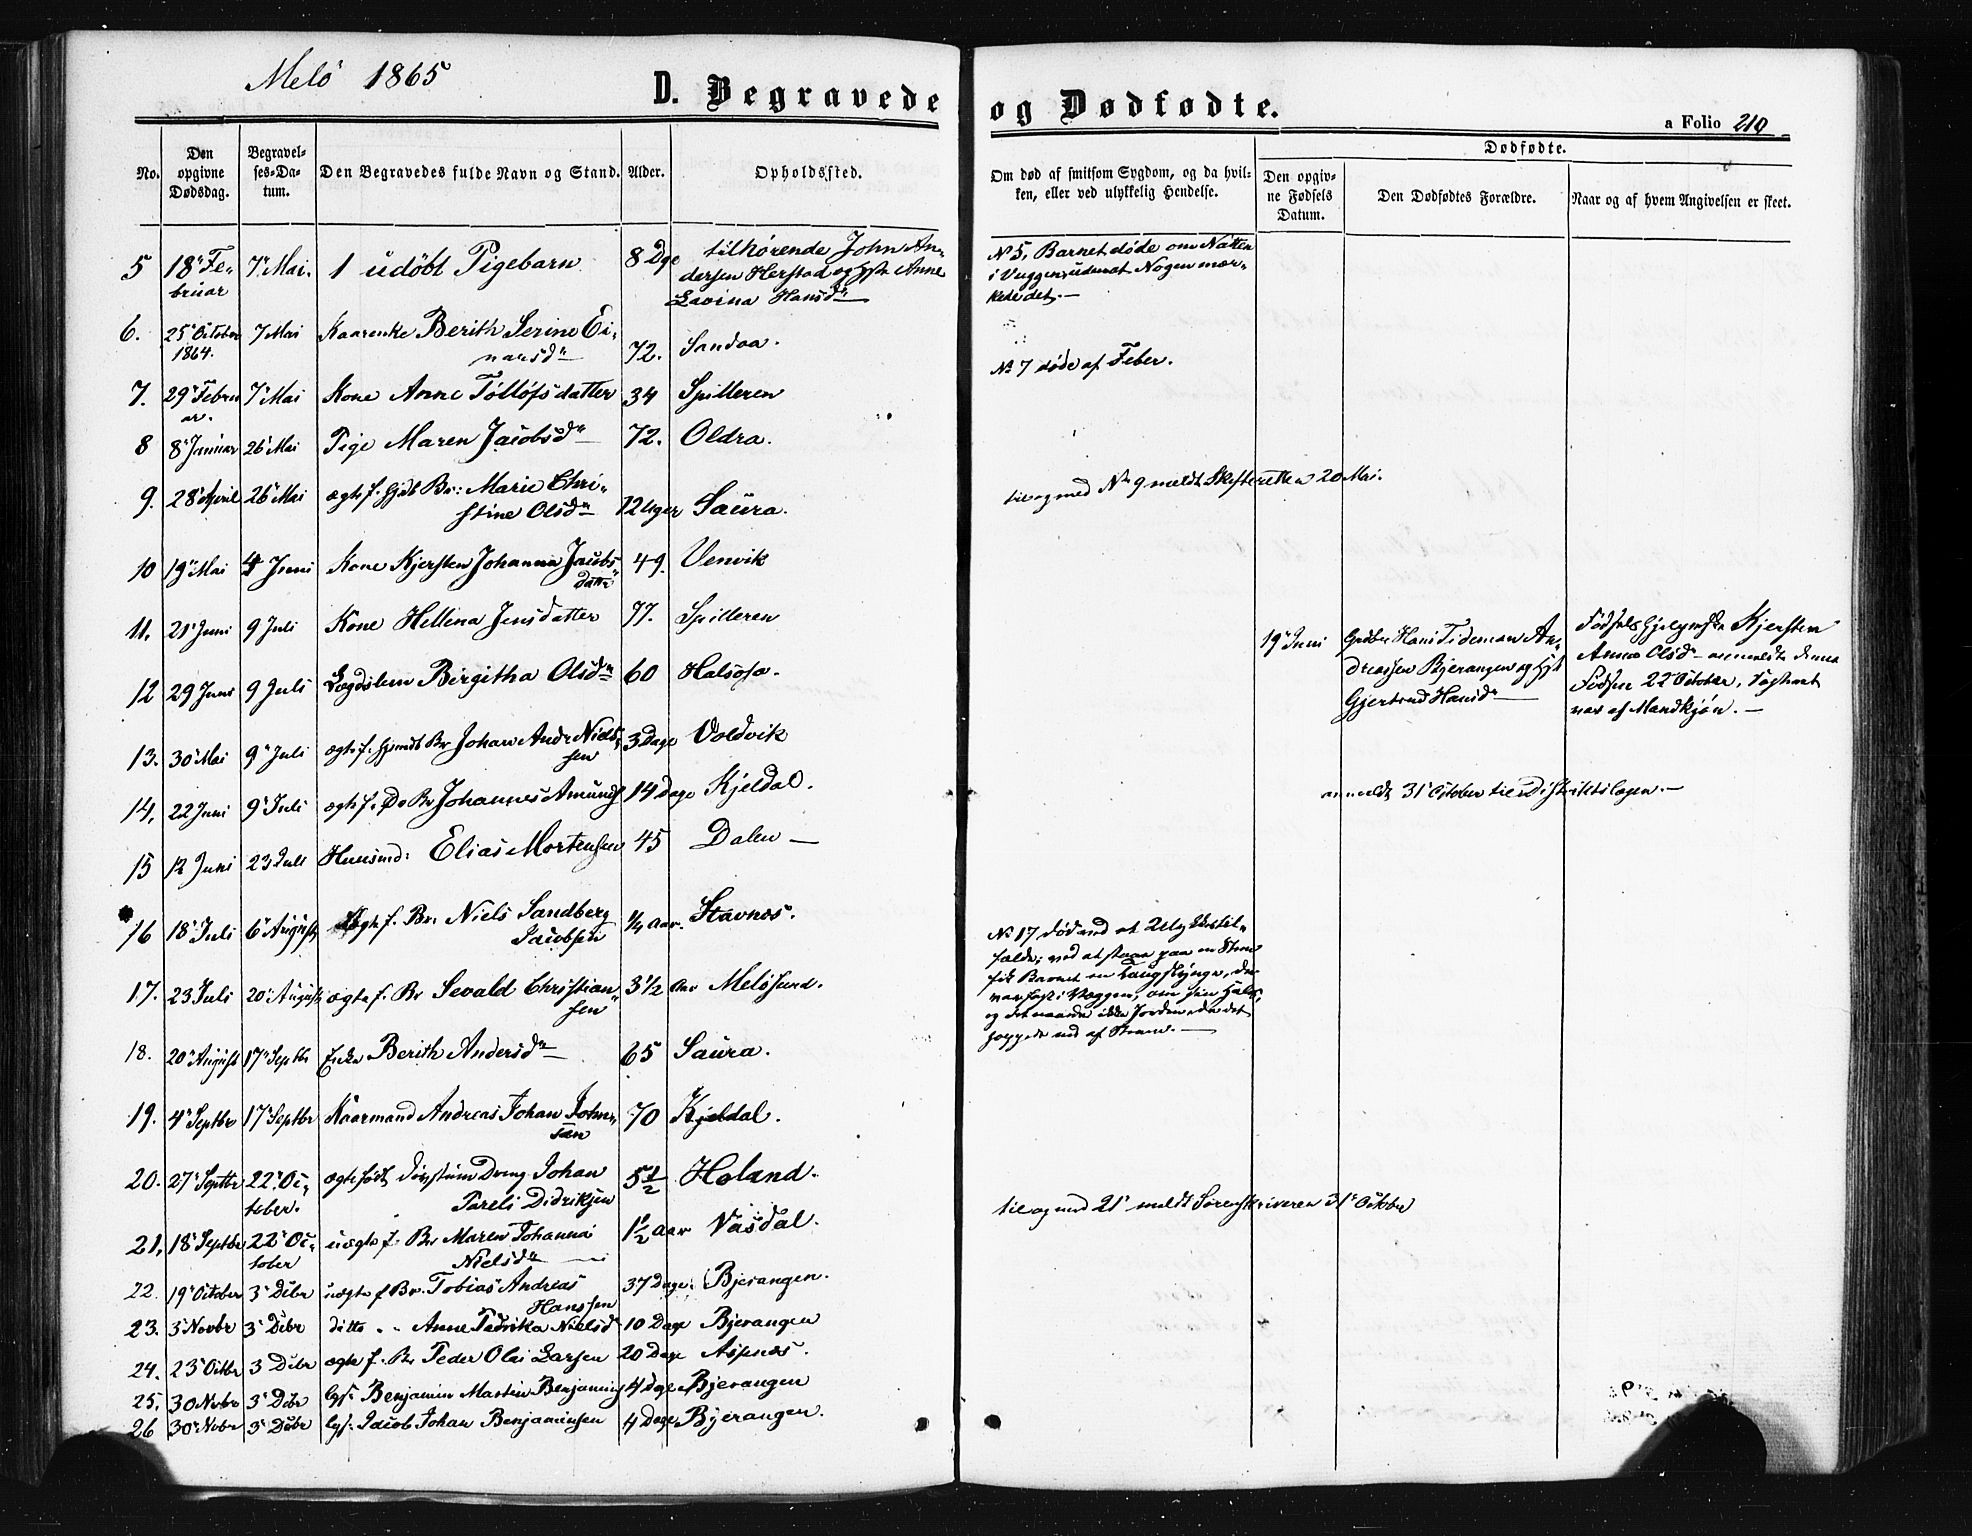 Melö 1865
D. Begravede og Dødfødte.
a Folio 210
No.
Den opgivne Dødsdag.
Begravelses-Datum.
Den Begravedes fulde Navn og Stand.
Alder.
Opholdssted.
Om død af smitsom Sygdom, og da hvilken, eller ved ulykkelig Hendelse.
Dødfødte.
Den opgivne Fødsels Datum.
Den Dødfødtes Forældre.
Naar og af hvem Angivelsen er skeet.
5 18 Februar 7 Mai. 1 udöbt Pigebarn 8 Dge tilhörende John Andersen Herstad og Hst Anne Lavina Hansd
N 5, Barnet døde om Natten
i Vuggen, udenat Nogen mær-
kede det.—
6. 25 October 1864. 7 Mai Kaarenke Berith Serine Einarsd 72. Sandaa.
No 7 døde af Feber.
7. 29 Februar. 7 Mai Kone Anne Tollöfsdatter 34 Spilderen
8 8 Januar 26 Mai Pige Maren Jacobsd 72. Oldra.
9. 28 April 26 Mai ægte f. hjdbt Br: Marie Christine Olsd 12 Uger Saura.
til og med No 9 meldt Skifteretten 20 Mai.
10 19 Mai 4 Juni Kone Kjersten Johanna Jacobsdatter 49. Venvik
11. 21 Juni 9 Juli Kone Hellena Jensdatter 77. Spilderen
12 29 Juni 9 Juli Lægdslem Birgitha Olsd 60 Halsosa.
19 Juni
Hans Tideman An-
dreassen Bjerangen og Hst
Gjertrud Hansd
Fødselshjelperske Kjersten
Anna Olsd anmeldte denne
Fødsel 22 October, Fostret
var af Mandkjøn.—
13. 30 Mai 9 Juli ægte f. hjemdbt Br Johan Andr. Nielssen 3 Dage Voldvik
14, 22 Juni 9 Juli ægte f. Do Br Johannes Amunds 14 Dage Kjeldal.
anmeldt 31 October til Distriktslægen.—
15 12 Juni 23 Juli Huusmd: Elias Mortensen 45 Dalen—
16 18 Juli 6 August ægte f. Br. Niels Sandberg Jacobsen 1/4 Aar. Stavnæs.
17. 23 Juli 20 August ægte f. Br Sevald Christiansen 3 1/2 Aar Melösund.
No 17 død ved et Ulykkestil-
fælde; ved at staa paa en Stoen
fik Barnet en, der
var fast i Væggen, om sin Hals,
og det naaede ikke Jorden, da det
hoppede ned af Stoen.—
18. 20 August 17 Septbr Enke Berith Andersd 65 Saura.
19. 4 Septbr 17 Septbr Kaarmand Andreas Johan Johnsen 70 Kjeldal.
20. 27 Septbr 22 October. ægtefødt Dreng Johan Pareli Didriksen 5 1/2 Holand.
til og med 21 meldt Sorenskriveren 31 Octbr
21, 18 Septbr 22 October uægte f. Br Maren Johanna Nielsd 1 1/2 Aar Vasdal.
22. 19 October 3 Debr uægte f Br. Tobias Andreas Hanssen 37 Dage. Bjerangen.
23. 3 Novbr 3 Debr ditto Anne Fedrika Nielsd 10 Dage Bjerangen
24. 23 Octbr 3 Debr ægte f. Br Peder Olai Larsen 20 Dage Aspnæs.
25, 30 Novbr 3 Debr Benjamin Martin Benjamins 4 Dage Bjerangen
26 30 Novbr 3 Debr Jacob Johan Benjaminsen 4 Dage Bjerangen.